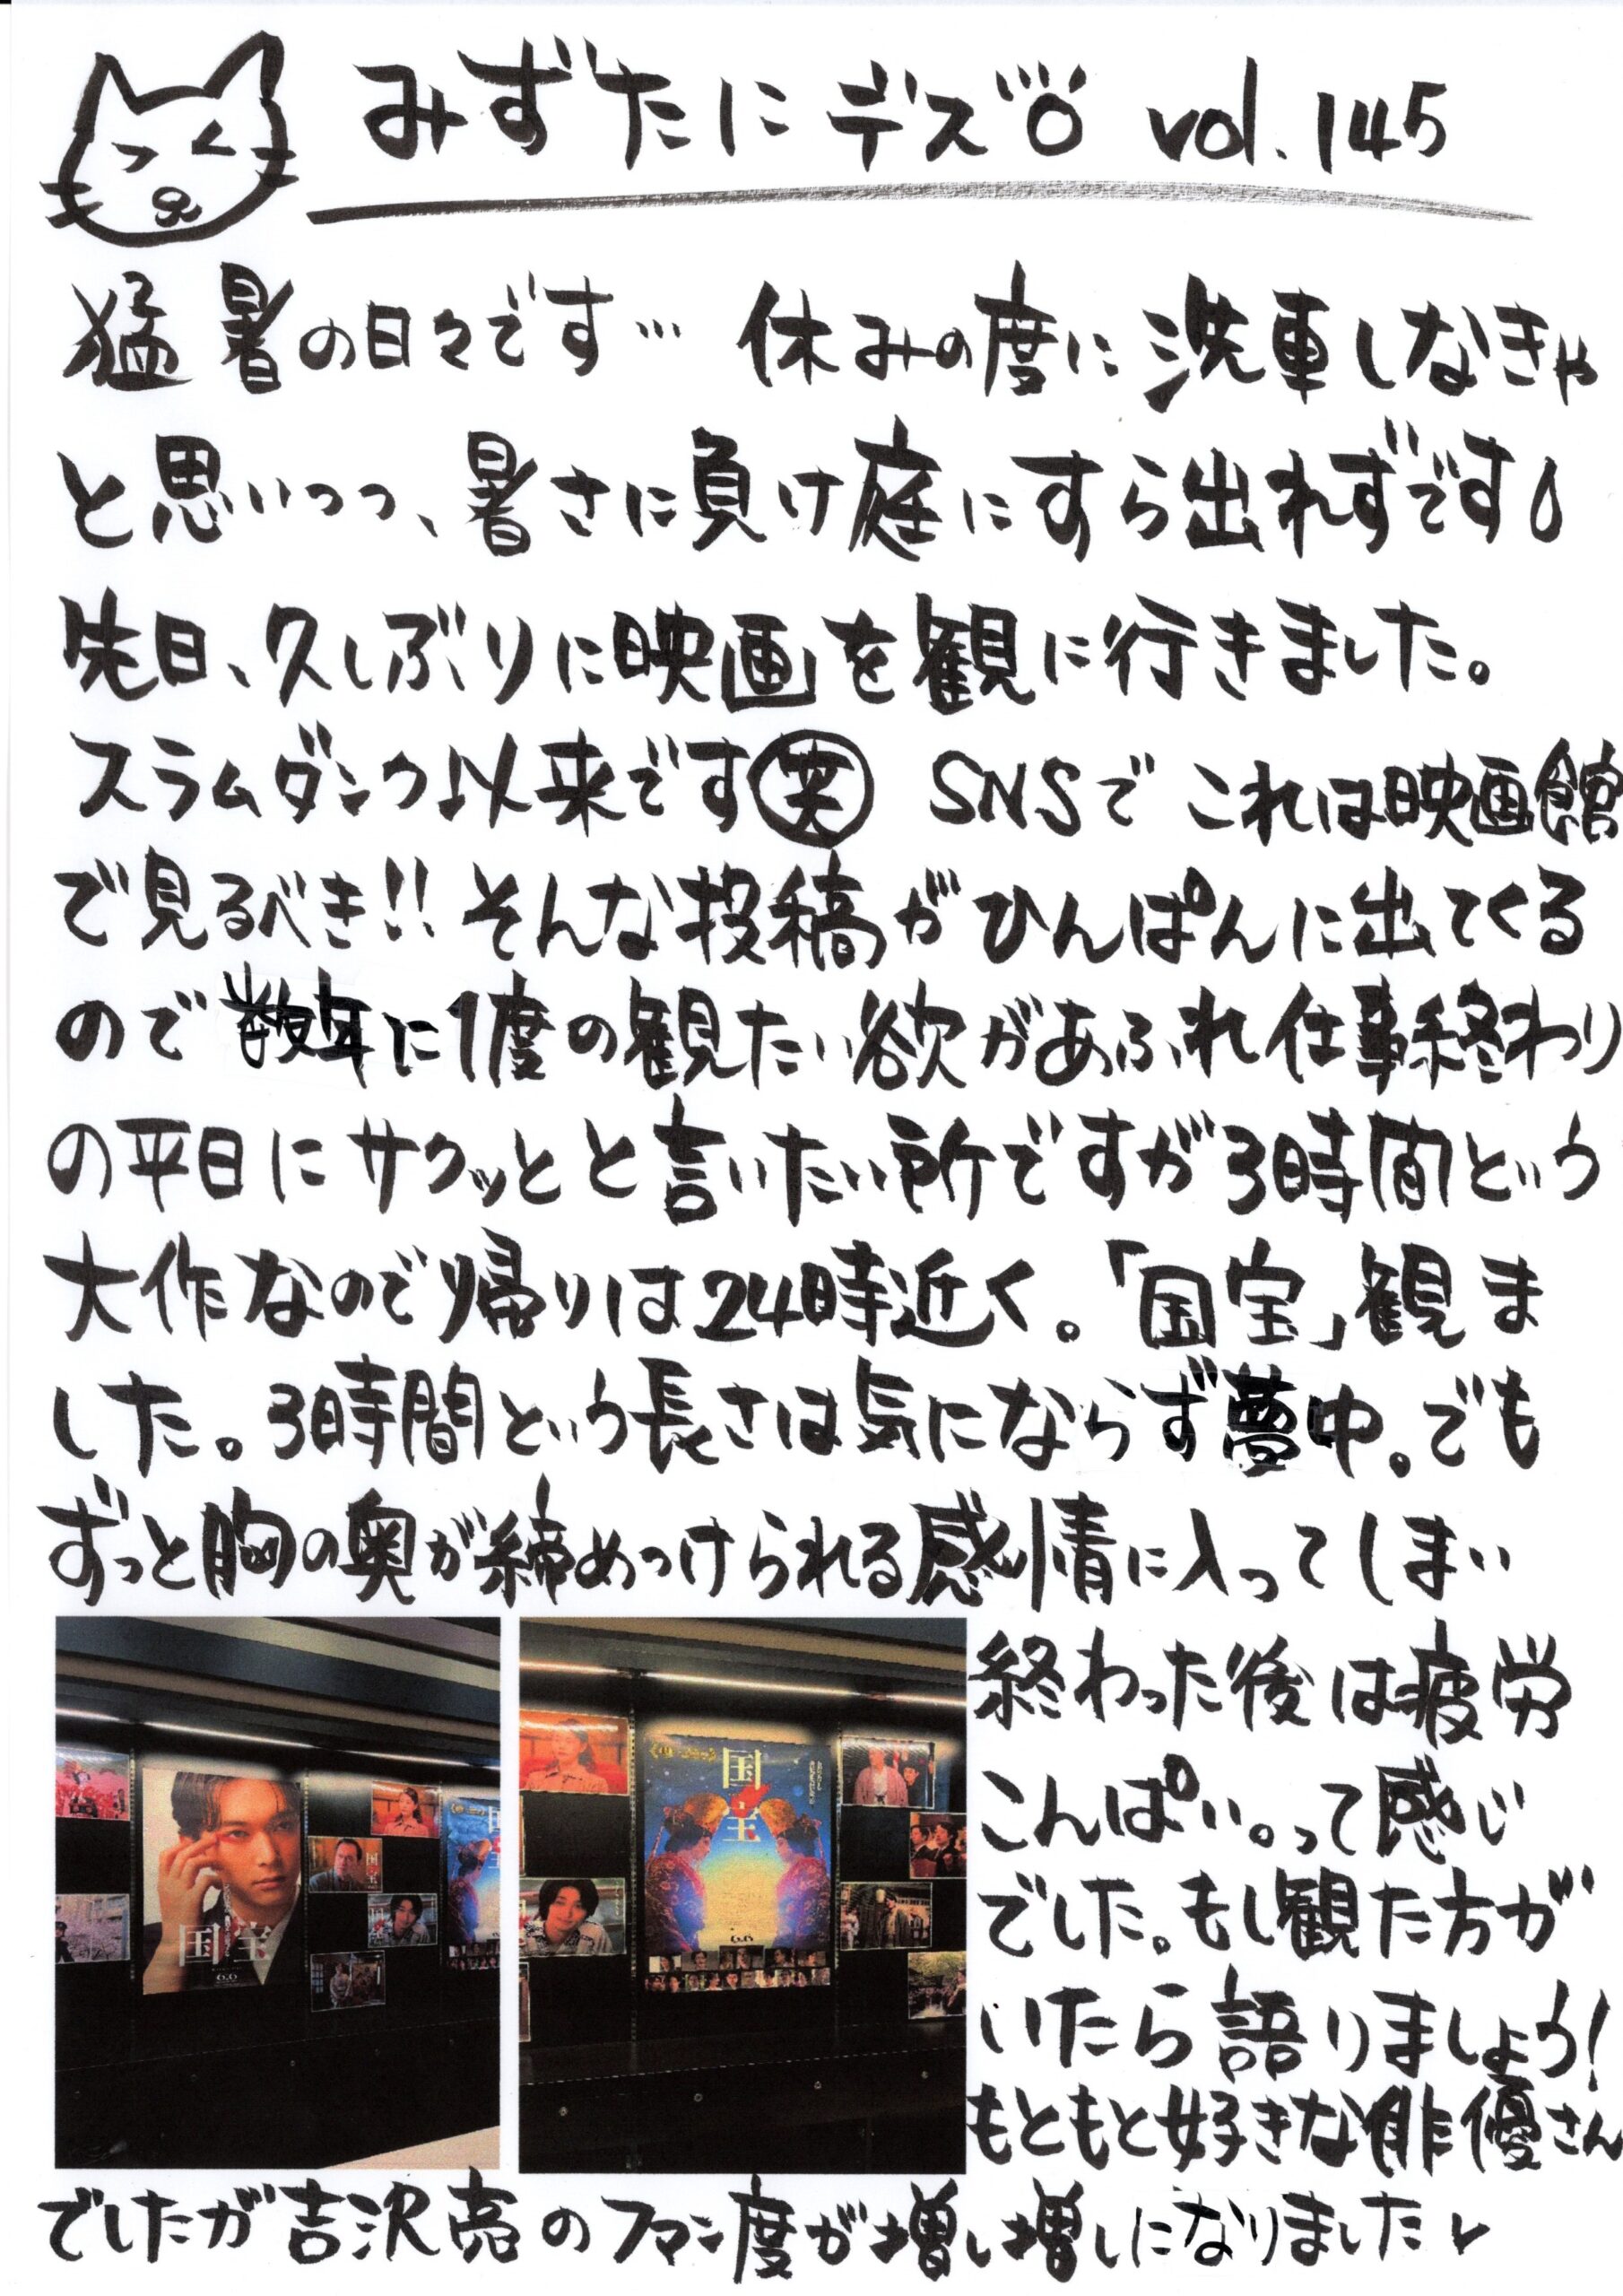 みずたにデス vol.145
猛暑の日々です… 休みの度に洗車しなきゃ
と思いつつ、暑さに負け庭にすら出れずです
先日、久しぶりに映画を観に行きました。
スラムダンク以来です㊋笑 SNSで これは映画館
で見るべき!! そんな投稿がひんぱんに出てくる
ので 数年に1度の観たい欲があふれ仕事終わり
の平日にサクッとと言いたい所ですが3時間という
大作なので帰りは24時近く。「国宝」観ま
した。3時間という長さは気にならず夢中。でも
ずっと胸の奥が締めつけられる感情に入ってしまい
終わった後は疲労
こんぱい。って感じ
でした。もし観た方が
いたら語りましょう!
もともと好きな俳優さん
でしたが吉沢亮のファン度が増し増しになりました
国宝
6.6
国宝
国宝